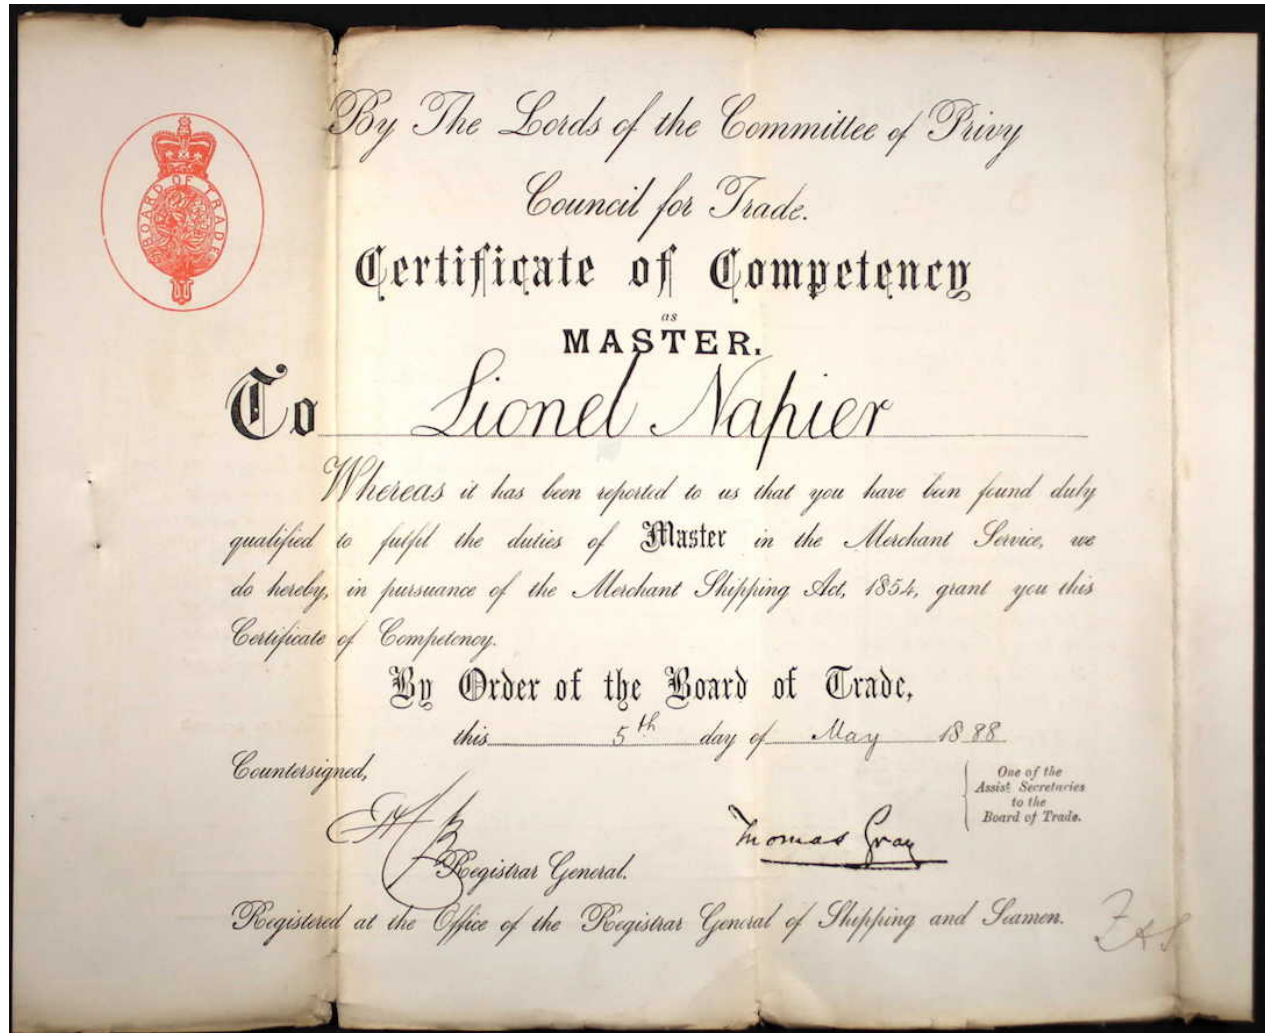 By The Lords of the Committee of Privy
Council for Trade.
BOARD OF TRADE
Certificate of Competency
as
MASTER.
To Lionel Napier
Whereas it has been reported to us that you have been found duly
qualified to fulfil the duties of Master in the Merchant Service, we
do hereby, in pursuance of the Merchant Shipping Act, 1854, grant you this
Certificate of Competency.
By Order of the Board of Trade,
this 5th day of May 1888
Countersigned,
One of the
Assist Secretaries
to the
Board of Trade.
Thomas Gray
Registrar General.
Registered at the Office of the Registrar General of Shipping and Seamen.